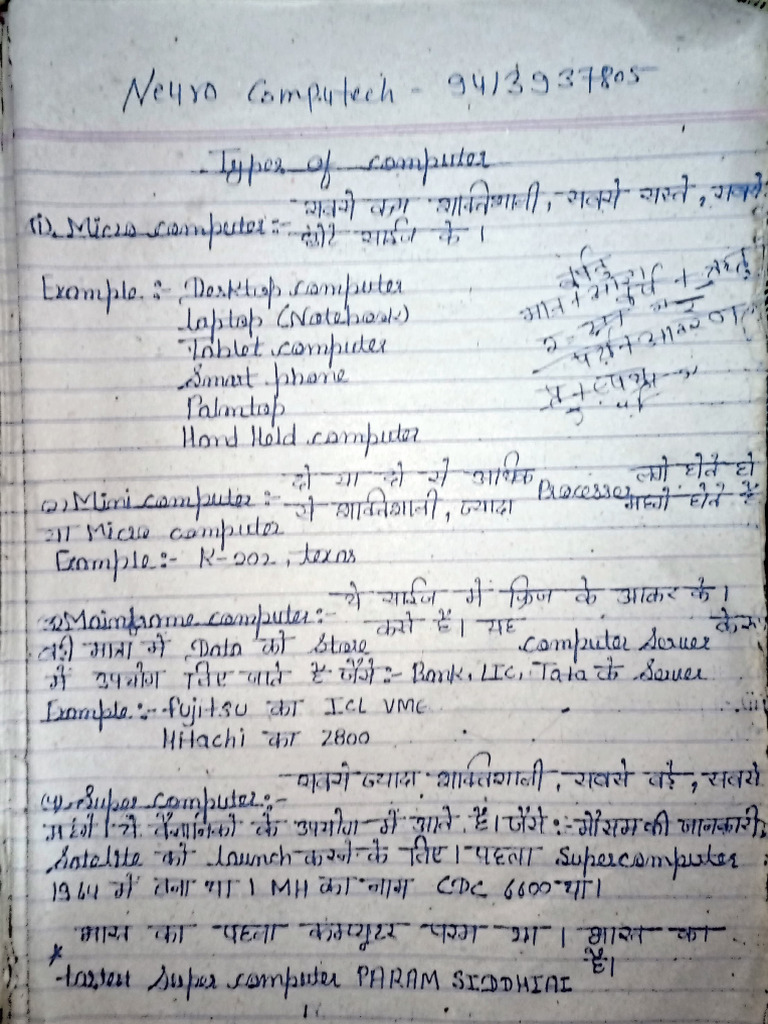 Neuro Computech - 9413937805
Types of computer
(i). Micro computer :- सबसे कम शक्तिशाली, सबसे सस्ते, सबसे
छोटे साईज के।
Example :- Desktop computer
Laptop (Notebook)
Tablet computer
Smart phone
Palmtop
Hand Held computer
(2) Mini computer :- दो या दो से अधिक Processor लगे होते हो
या Micro computer से शक्तिशाली, ज्यादा महंगे होते है
Example :- K-202, texas
Mainframe computer :- ये साईज में फ्रिज के आकर के।
बड़ी मात्रा में Data को Store करते हैं। यह computer Server के रूप
में उपयोग लिए जाते है जैसे :- Bank, LIC, Tata के Server
Example :- Fujitsu का ICL VME
Hitachi का Z800
(4) Super computer :- सबसे ज्यादा शक्तिशाली, सबसे बड़े, सबसे
महंगे। ये वैज्ञानिको के उपयोग में आते हैं। जैसे :- मौसम की जानकारी,
Satelite को launch करने के लिए। पहला Supercomputer
1964 में बना था। का नाम CDC 6600 था।
भारत का पहला कम्प्यूटर परम था। भारत का
Super computer PARAM SIDDHIAI है।